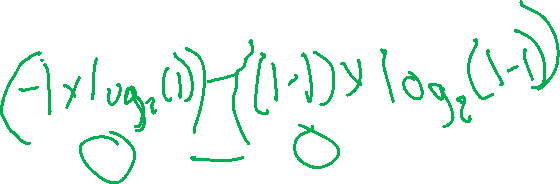 (-1 x log₂(1)) - ((1-1) x log₂(1-1))
0 0